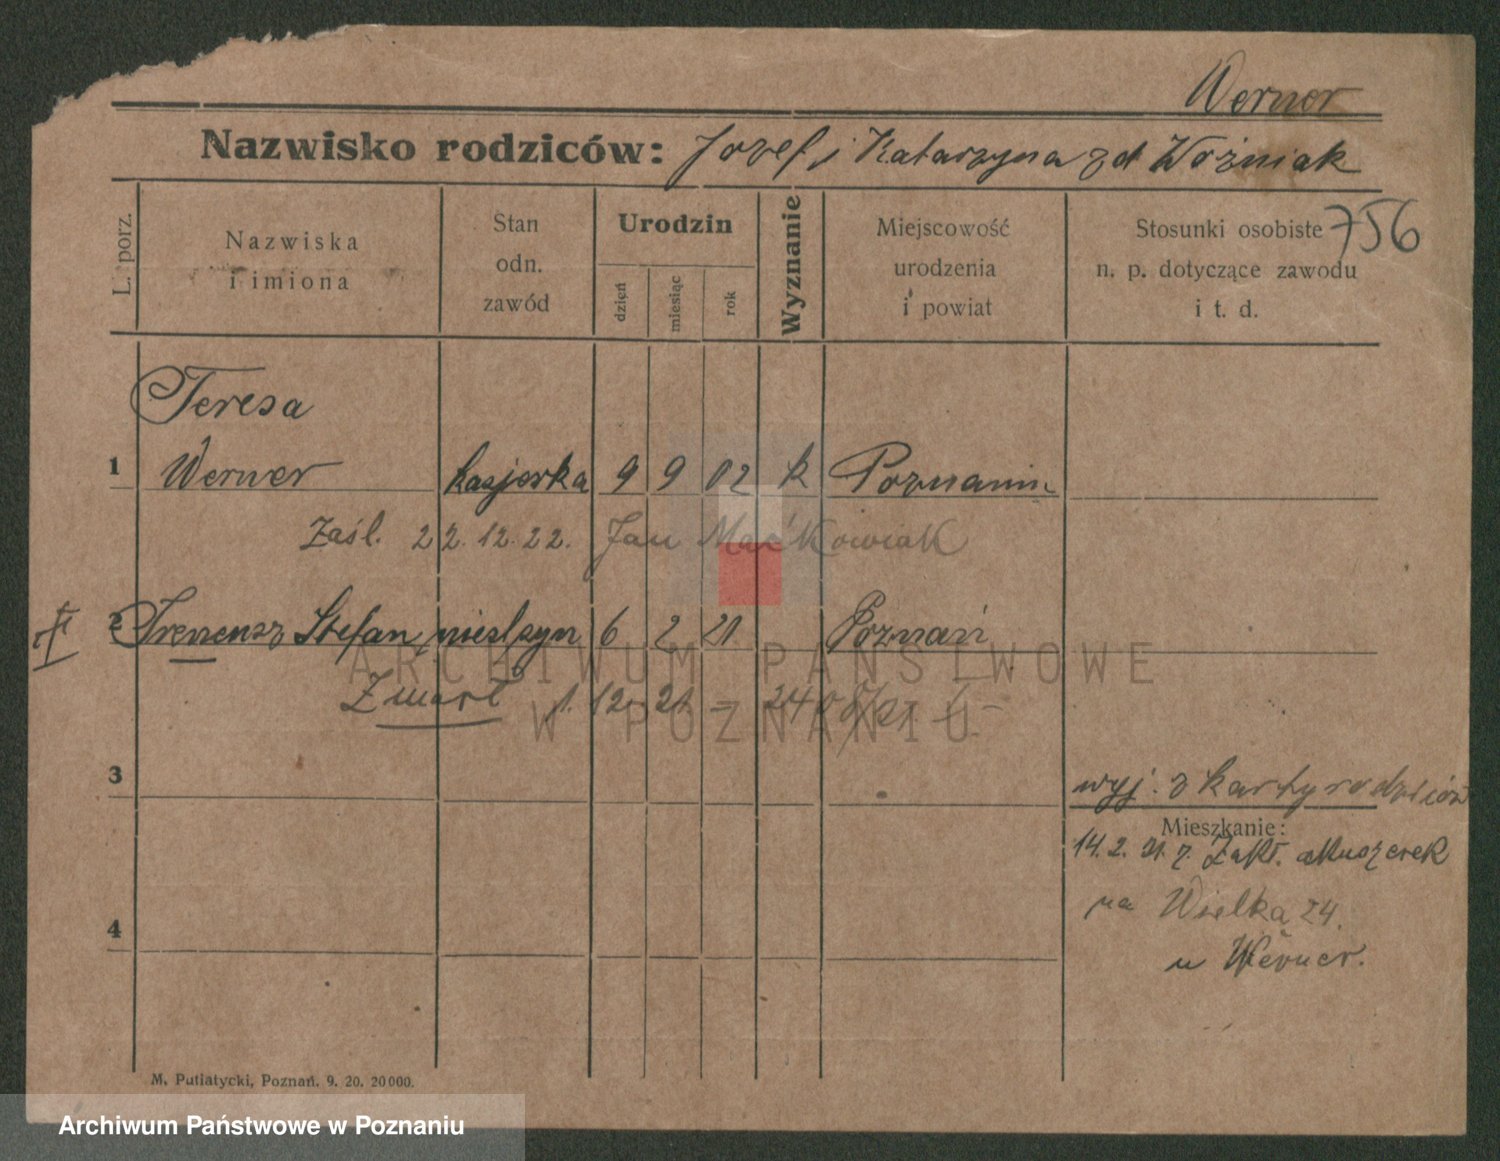 Werner
Nazwisko rodziców: Jozef i Katarzyna zd Woźniak
756
L. porz.
Nazwiska
i imiona
Stan
odn.
zawód
Urodzin
dzień
miesiąc
rok
Wyznanie
Miejscowość
urodzenia
i powiat
Stosunki osobiste
n. p. dotyczące zawodu
i t. d.
Teresa
1 Werner kasjerka 9 9 02 k Poznaniu
Zaśl. 22.12.22. Jan Maćkowiak
2 Ireneusz Stefan, nieśl syn 6 2 21 Poznań
Zmarł 1. 12. 21. -
ARCHIWUM PAŃSTWOWE
W POZNANIU
3
wyj. z karty rodziców
Mieszkanie:
14. 2. 21. z Zakł.
na Wielka 24.
u Werner.
4
M. Putiatycki, Poznań. 9. 20. 20000.
Archiwum Państwowe w Poznaniu